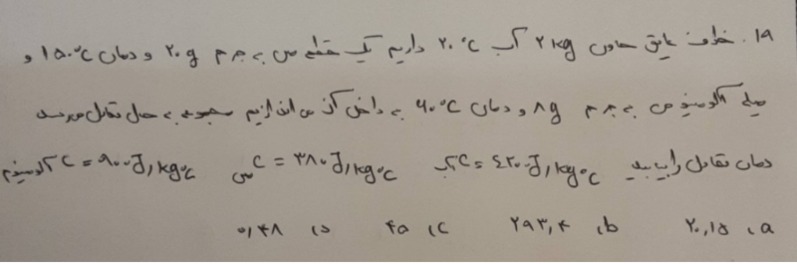 ۱۹. ظرف عایق حاوی ۲ kg آب ۲۰ °C داریم یک قطعه مس به جرم ۲۰ g و دمای ۱۵۰ °C و
میله آلومینیوم به جرم ۸ g و دمای ۹۰ °C به داخل آن می اندازیم مجموعه به حال تعادل میرسد
دمای تعادل را بیابید C = ۴۲۰۰ J/kg°C آب C = ۳۸۰ J/kg°C مس C = ۹۰۰ J/kg°C آلومینیوم
a) ۲۰,۱۵ b) ۲۹۳,۴ c) ۴۵ d) ۰,۴۸